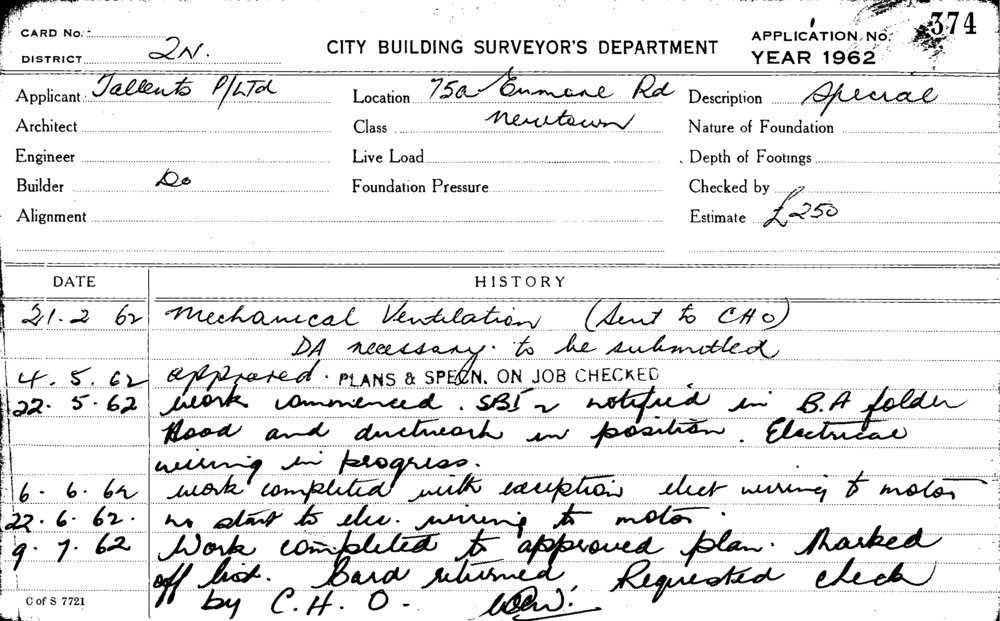 CARD No.
DISTRICT 2N.
CITY BUILDING SURVEYOR'S DEPARTMENT
APPLICATION No. 374
YEAR 1962
Applicant Tallents P/LTd
Location 75a Enmore Rd
Newtown
Description Special
Architect
Class
Nature of Foundation
Engineer
Live Load
Depth of Footings
Builder Do
Foundation Pressure
Checked by
Alignment
Estimate £250
DATE HISTORY
21.2 62 Mechanical Ventilation (Sent to CHO)
DA necessary. to be submitted
4.5.62 approved. PLANS & SPECN. ON JOB CHECKED
22.5.62 work commenced. notified in B.A folder
Hood and ductwork in position. Electrical
wiring in progress.
6.6.62 work completed with exception elect wiring to motor
22.6.62. no start to elec. wiring to motor.
9.7.62 Work completed to approved plan. Marked
off list. Card returned. Requested check
by C.H.O.
C of S 7721